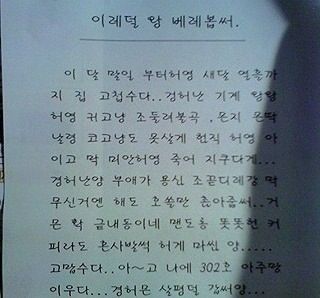 이레덜 왕 베레봅써.
이 달 말일 부터허영 새달 열흘까
지 집 고첩수다..경허난 기계 왕왕
허영 귀고냥 조둘려불곡 ,몬지 몬딱
날령 코고냥도 못살게 헌직 허영 아
이고 막 미안허영 죽어 지쿠다게...
경허난양 부애가 용심 조끝디레강 막
무신거엔 해도 호쏠만 촘아줍써..거
은 확 금내동이네 맨도롱 뚯뚯헌 커
피라도 혼사발썩 허게 마씸 양.....
고맙수다..아~고 나에 302호 아주망
이우다...경허믄 살펑덜 갑써양...